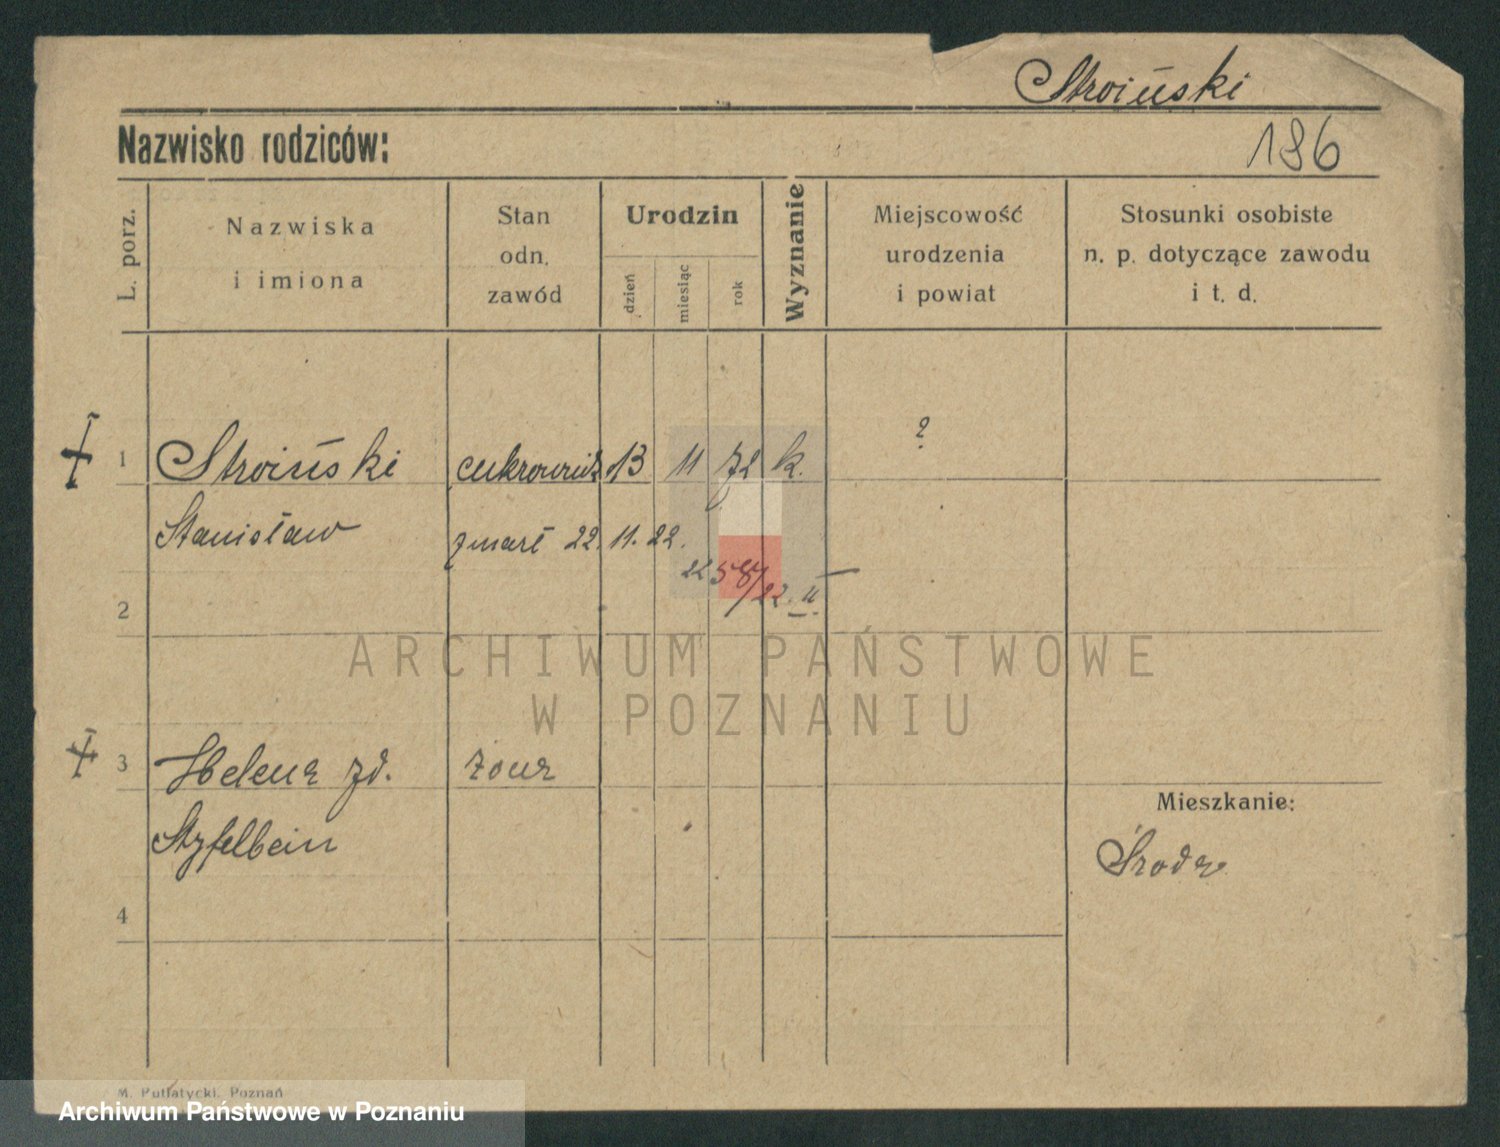 Stroiński
Nazwisko rodziców:
186
L. porz.
Nazwiska
i imiona
Stan
odn.
zawód
Urodzin
dzień
miesiąc
rok
Wyznanie
Miejscowość
urodzenia
i powiat
Stosunki osobiste
n. p. dotyczące zawodu
i t. d.
1 Stroiński cukrownik 13 11 72 k. ?
Stanisław zmarł 22. 11. 22.
587/22. II
2
ARCHIWUM PAŃSTWOWE
W POZNANIU
3 Helena zd. żona
Mieszkanie:
Styfelbein
Środa
4
M. Putiatycki, Poznań
Archiwum Państwowe w Poznaniu